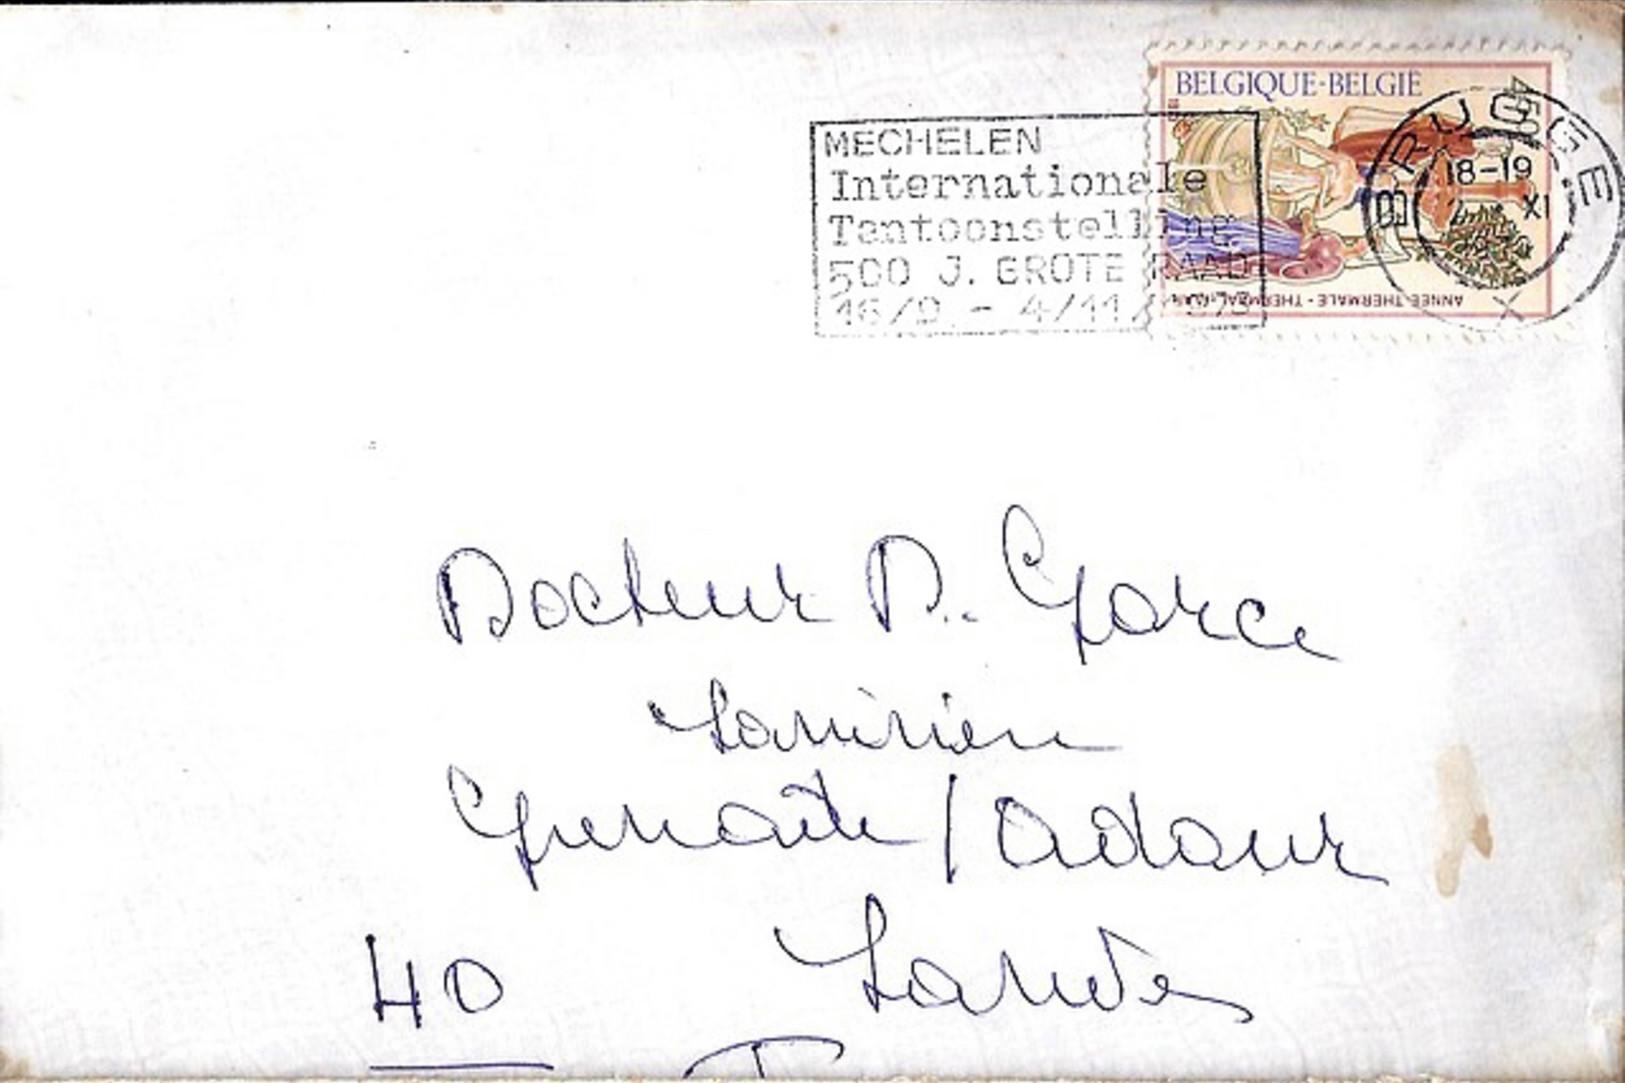 BELGIQUE-BELGIË
450
ANNEE THERMALE - THERMAAL JAAR
MECHELEN
Internationale
Tentoonstelling
500 J. GROTE RAAD
16/9 - 4/11
BRUGGE
18-19
XI
X
Docteur D. Gorce
Larrivière
Grenade / Adour
40 Landes